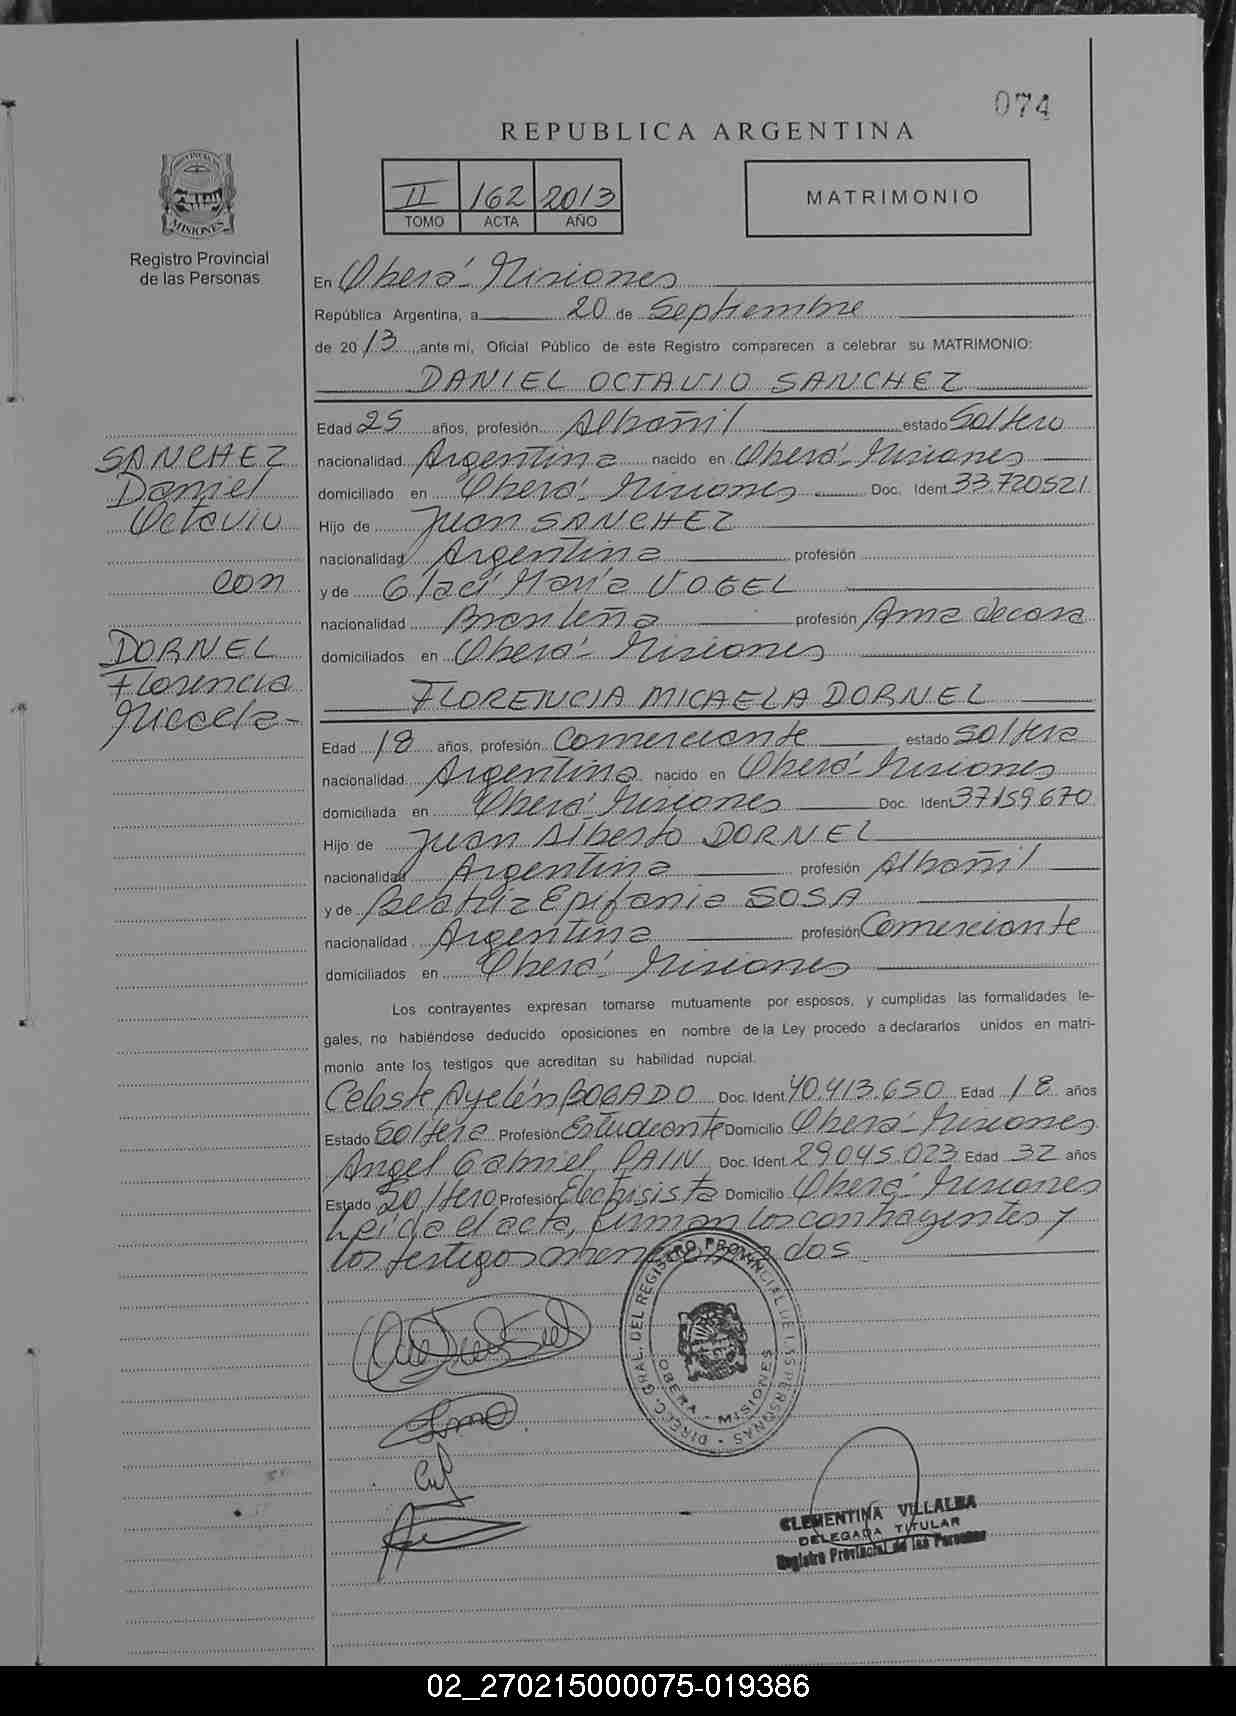 074
REPUBLICA ARGENTINA
II 162 2013
TOMO ACTA AÑO
MATRIMONIO
PROVINCIA DE
MISIONES
Registro Provincial
de las Personas
En Oberá - Misiones
República Argentina, a 20 de Septiembre
de 2013, ante mí, Oficial Público de este Registro comparecen a celebrar su MATRIMONIO:
DANIEL OCTAVIO SANCHEZ
Edad 25 años, profesión Albañil estado Soltero
nacionalidad Argentina nacido en Oberá - Misiones
domiciliado en Oberá - Misiones Doc. Ident 33.720521
Hijo de Juan SANCHEZ
nacionalidad Argentina profesión
y de Glaci María VOGEL
nacionalidad Brasileña profesión Ama de casa
domiciliados en Oberá - Misiones
SANCHEZ
Daniel
Octavio
con
DORNEL
Florencia
Micaela -
FLORENCIA MICAELA DORNEL
Edad 18 años, profesión Comerciante estado Soltera
nacionalidad Argentina nacido en Oberá - Misiones
domiciliada en Oberá - Misiones Doc. Ident 37159670
Hijo de Juan Alberto DORNEL
nacionalidad Argentina profesión Albañil
y de Beatriz Epifania SOSA
nacionalidad Argentina profesión Comerciante
domiciliados en Oberá - Misiones
Los contrayentes expresan tomarse mutuamente por esposos, y cumplidas las formalidades le-
gales, no habiéndose deducido oposiciones en nombre de la Ley procedo a declararlos unidos en matri-
monio ante los testigos que acreditan su habilidad nupcial.
Celeste Ayelén BOGADO Doc. Ident 40.413.650 Edad 18 años
Estado Soltera Profesión Estudiante Domicilio Oberá - Misiones
Angel Gabriel Doc. Ident 29.045.023 Edad 32 años
Estado Soltero Profesión Electricista Domicilio Oberá - Misiones
Leída el acta, firman los contrayentes y
los testigos mencionados
DIREC. GRAL. DEL REGISTRO PROVINCIAL DE LAS PERSONAS
OBERA - MISIONES
CLEMENTINA VILLALBA
DELEGADA TITULAR
Registro Provincial de las Personas
02_270215000075-019386